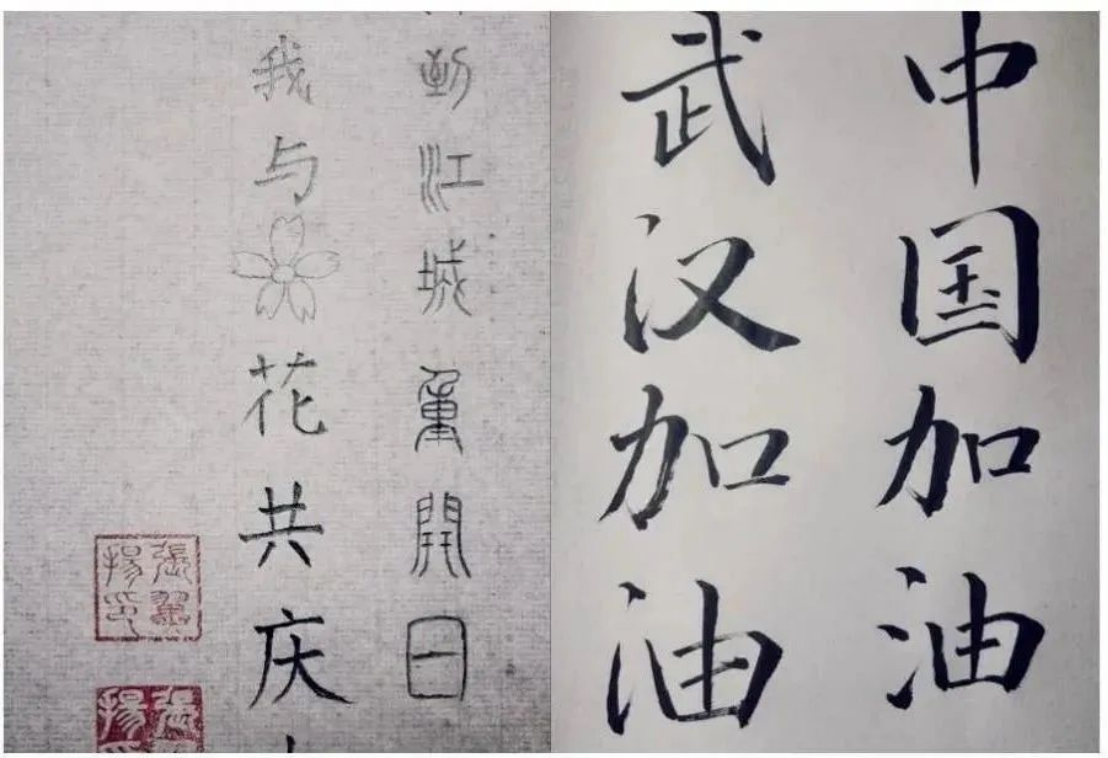 到江城重開日
我与花共庆
張翼
揚印
中国加油
武汉加油